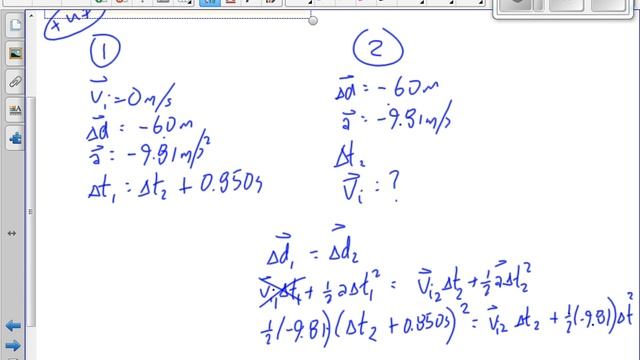 + ut
①
v⃗i = 0 m/s
Δd⃗ = -60m
a⃗ = -9.81m/s²
Δt₁ = Δt₂ + 0.850s
②
Δd⃗ = -60m
a⃗ = -9.81m/s
Δt₂
V⃗i = ?
Δd⃗₁ = Δd⃗₂
v⃗i₁Δt₁ + ½aΔt₁² = V⃗i₂Δt₂ + ½a⃗Δt₂²
½(-9.81)(Δt₂ + 0.850s)² = V⃗i₂ Δt₂ + ½(-9.81)Δt²